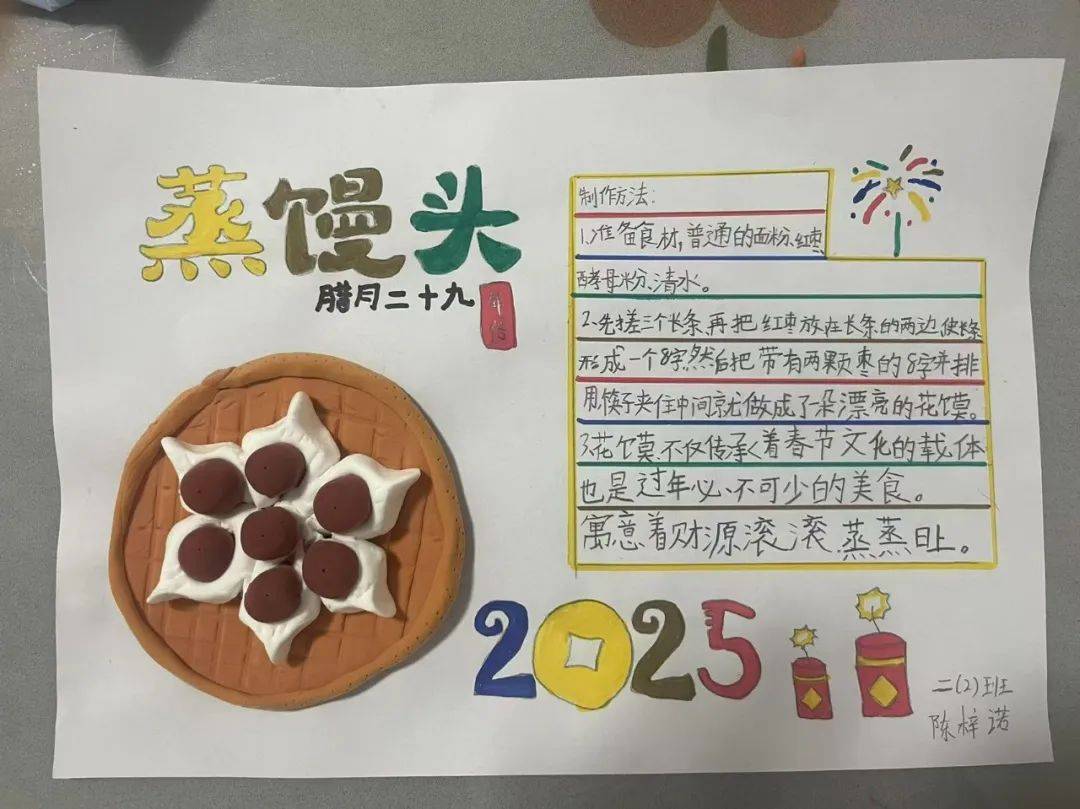 蒸馒头
腊月二十九
年俗
制作方法:
1.准备食材,普通的面粉、红枣
酵母粉、清水。
2.先搓三个长条,再把红枣放在长条的两边使长条
形成一个8字然后把带有两颗枣的8字并排
用筷子夹住中间就做成了一朵漂亮的花馍。
3.花馍不仅传承着春节文化的载体
也是过年必不可少的美食。
寓意着财源滚滚蒸蒸日上。
2025
二(2)班
陈梓诺